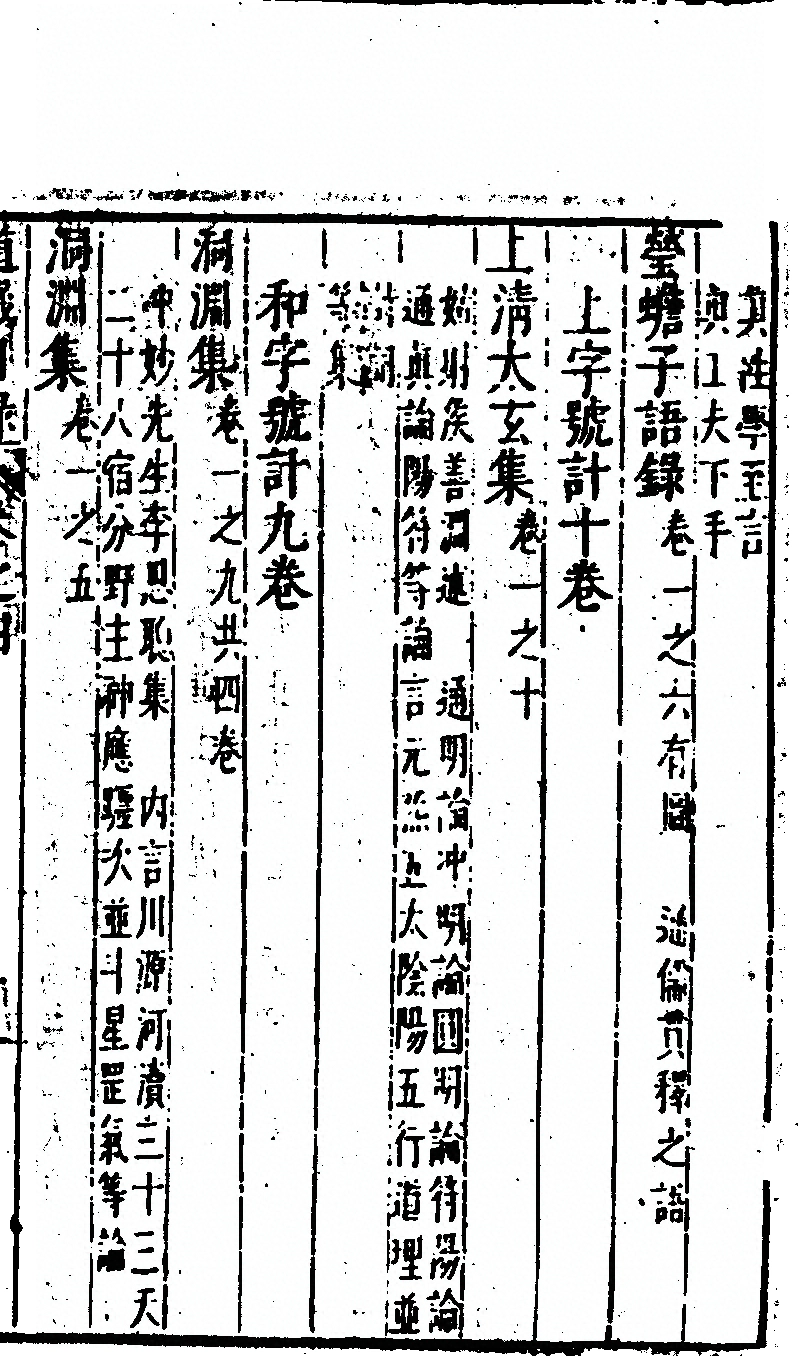 真性學至言
與工夫下手
瑩蟾子語錄卷一之六有圖 混儒貫釋之語
上字號計十卷
上清太玄集卷一之十
姑射侯善淵述 通明論沖明論圓明論符陽論
通真論陽符等論言元炁五太陰陽五行道理並
詩詞
等集
和字號計九卷
洞淵集卷一之九共四卷
沖妙先生李思聰集 內言川源河瀆三十三天
二十八宿分野主神應躔次並斗星罡氣等論
洞淵集卷一之五